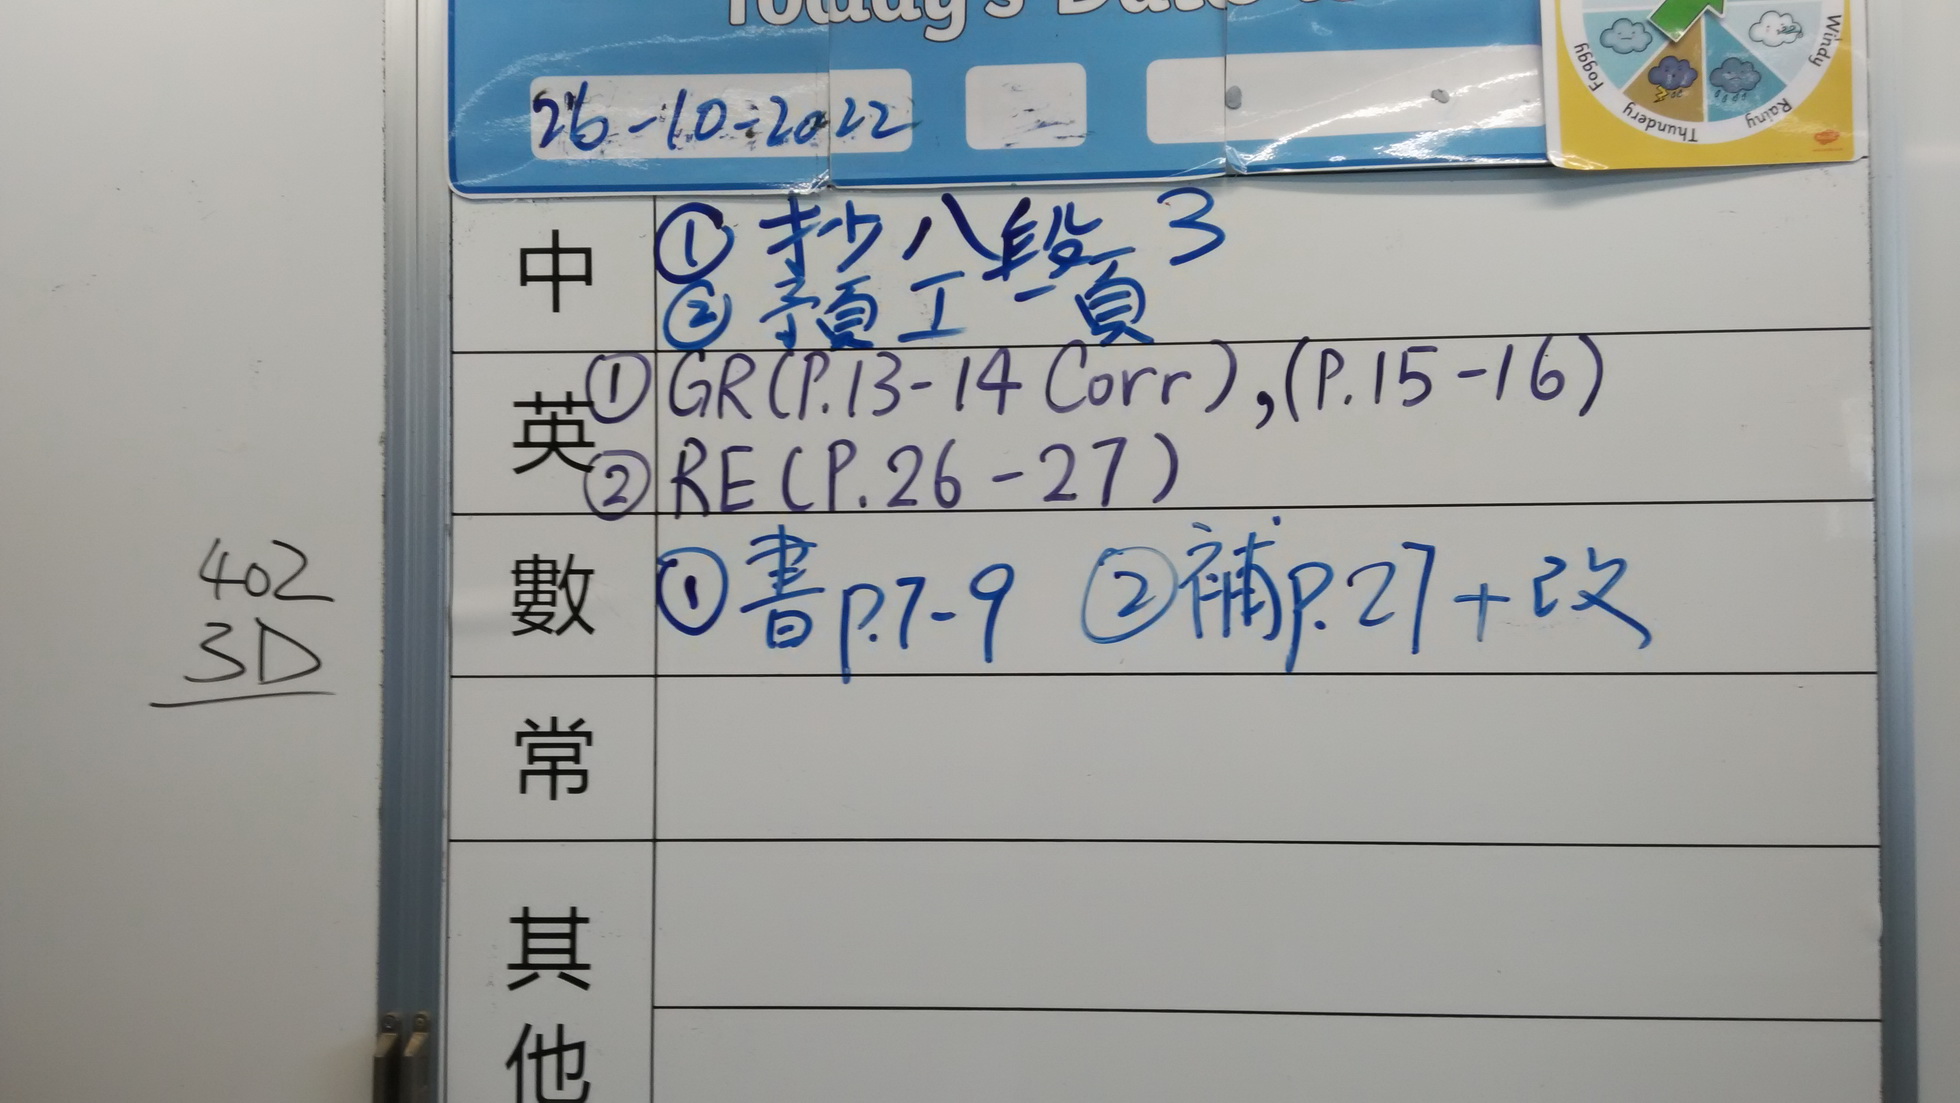 Today's Date
Foggy
Thundery
Rainy
Windy
26-10-2022
中
① 抄八段 3
② 預工一頁
英
① GR(P.13-14 Corr),(P.15-16)
② RE(P.26-27)
數
① 書p.7-9 ② 補p.27+改
常
其他
402
3D